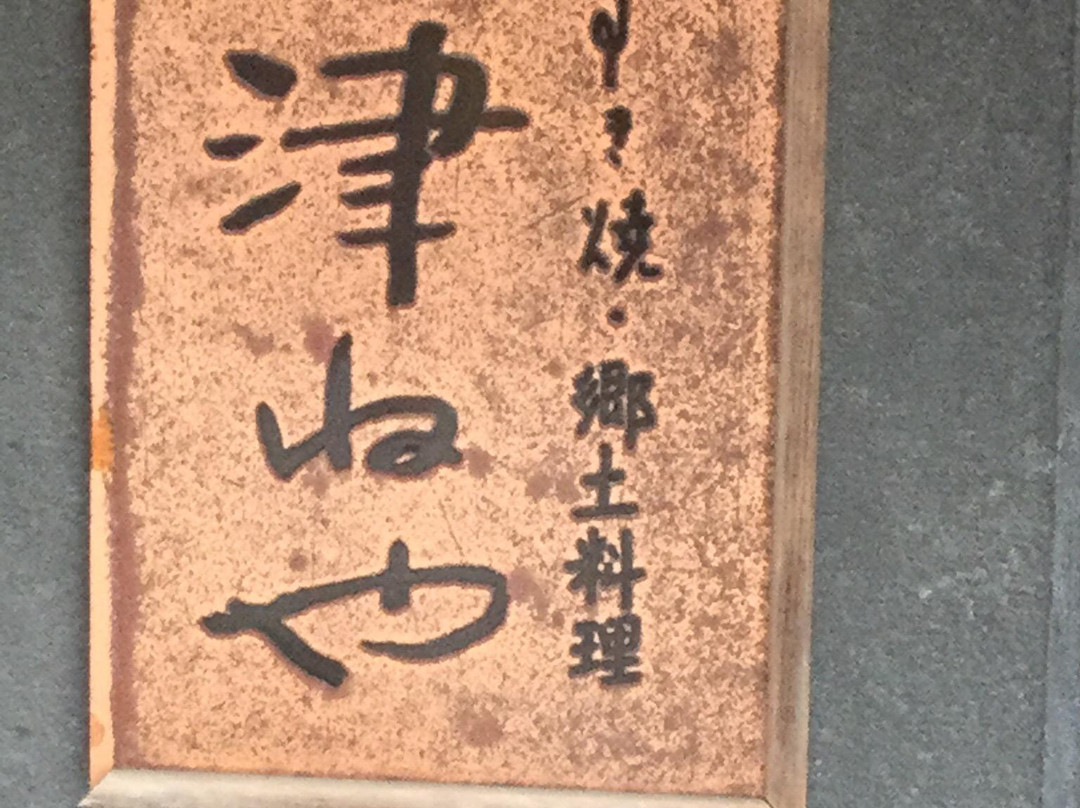 焼・郷土料理
津ねや